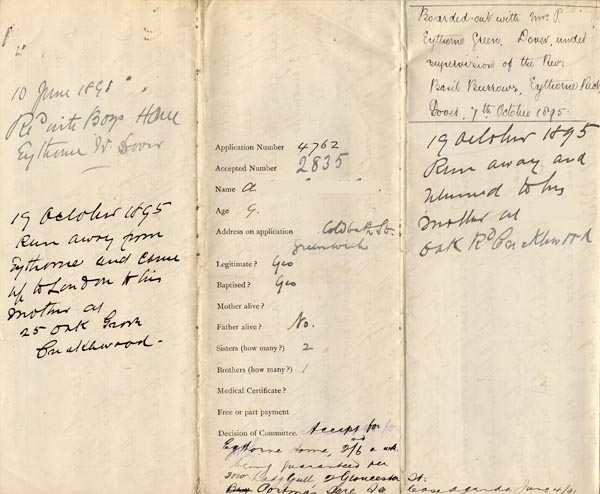 10 June 1891
Recd into Boys Home
Eythorne Nr Dover
19 October 1895
Run away from
Eythorne and came
up to London to his
mother at
25 Oak Grove
Cricklewood.
Application Number 4762
Accepted Number 2835
Name A
Age 9.
Address on application Coldbath St.
Greenwich
Legitimate? Yes
Baptised? Yes
Mother alive?
Father alive? No.
Sisters (how many?) 2
Brothers (how many?) 1
Medical Certificate?
Free or part payment
Decision of Committee. Accept for
Eythorne Home, 2/6 a wk.
being guaranteed per
Lady 2 Gloucester St:
Portman Sqre
Case agenda June 4/91
Boarded-out with Mrs. P.
Eythorne Green, Dover, under
supervision of the Rev.
Basil Burrows, Eythorne Rect.
Dover. 7th October 1895.
19 October 1895
Run away and
returned to his
mother at
Oak Rd Cricklewood